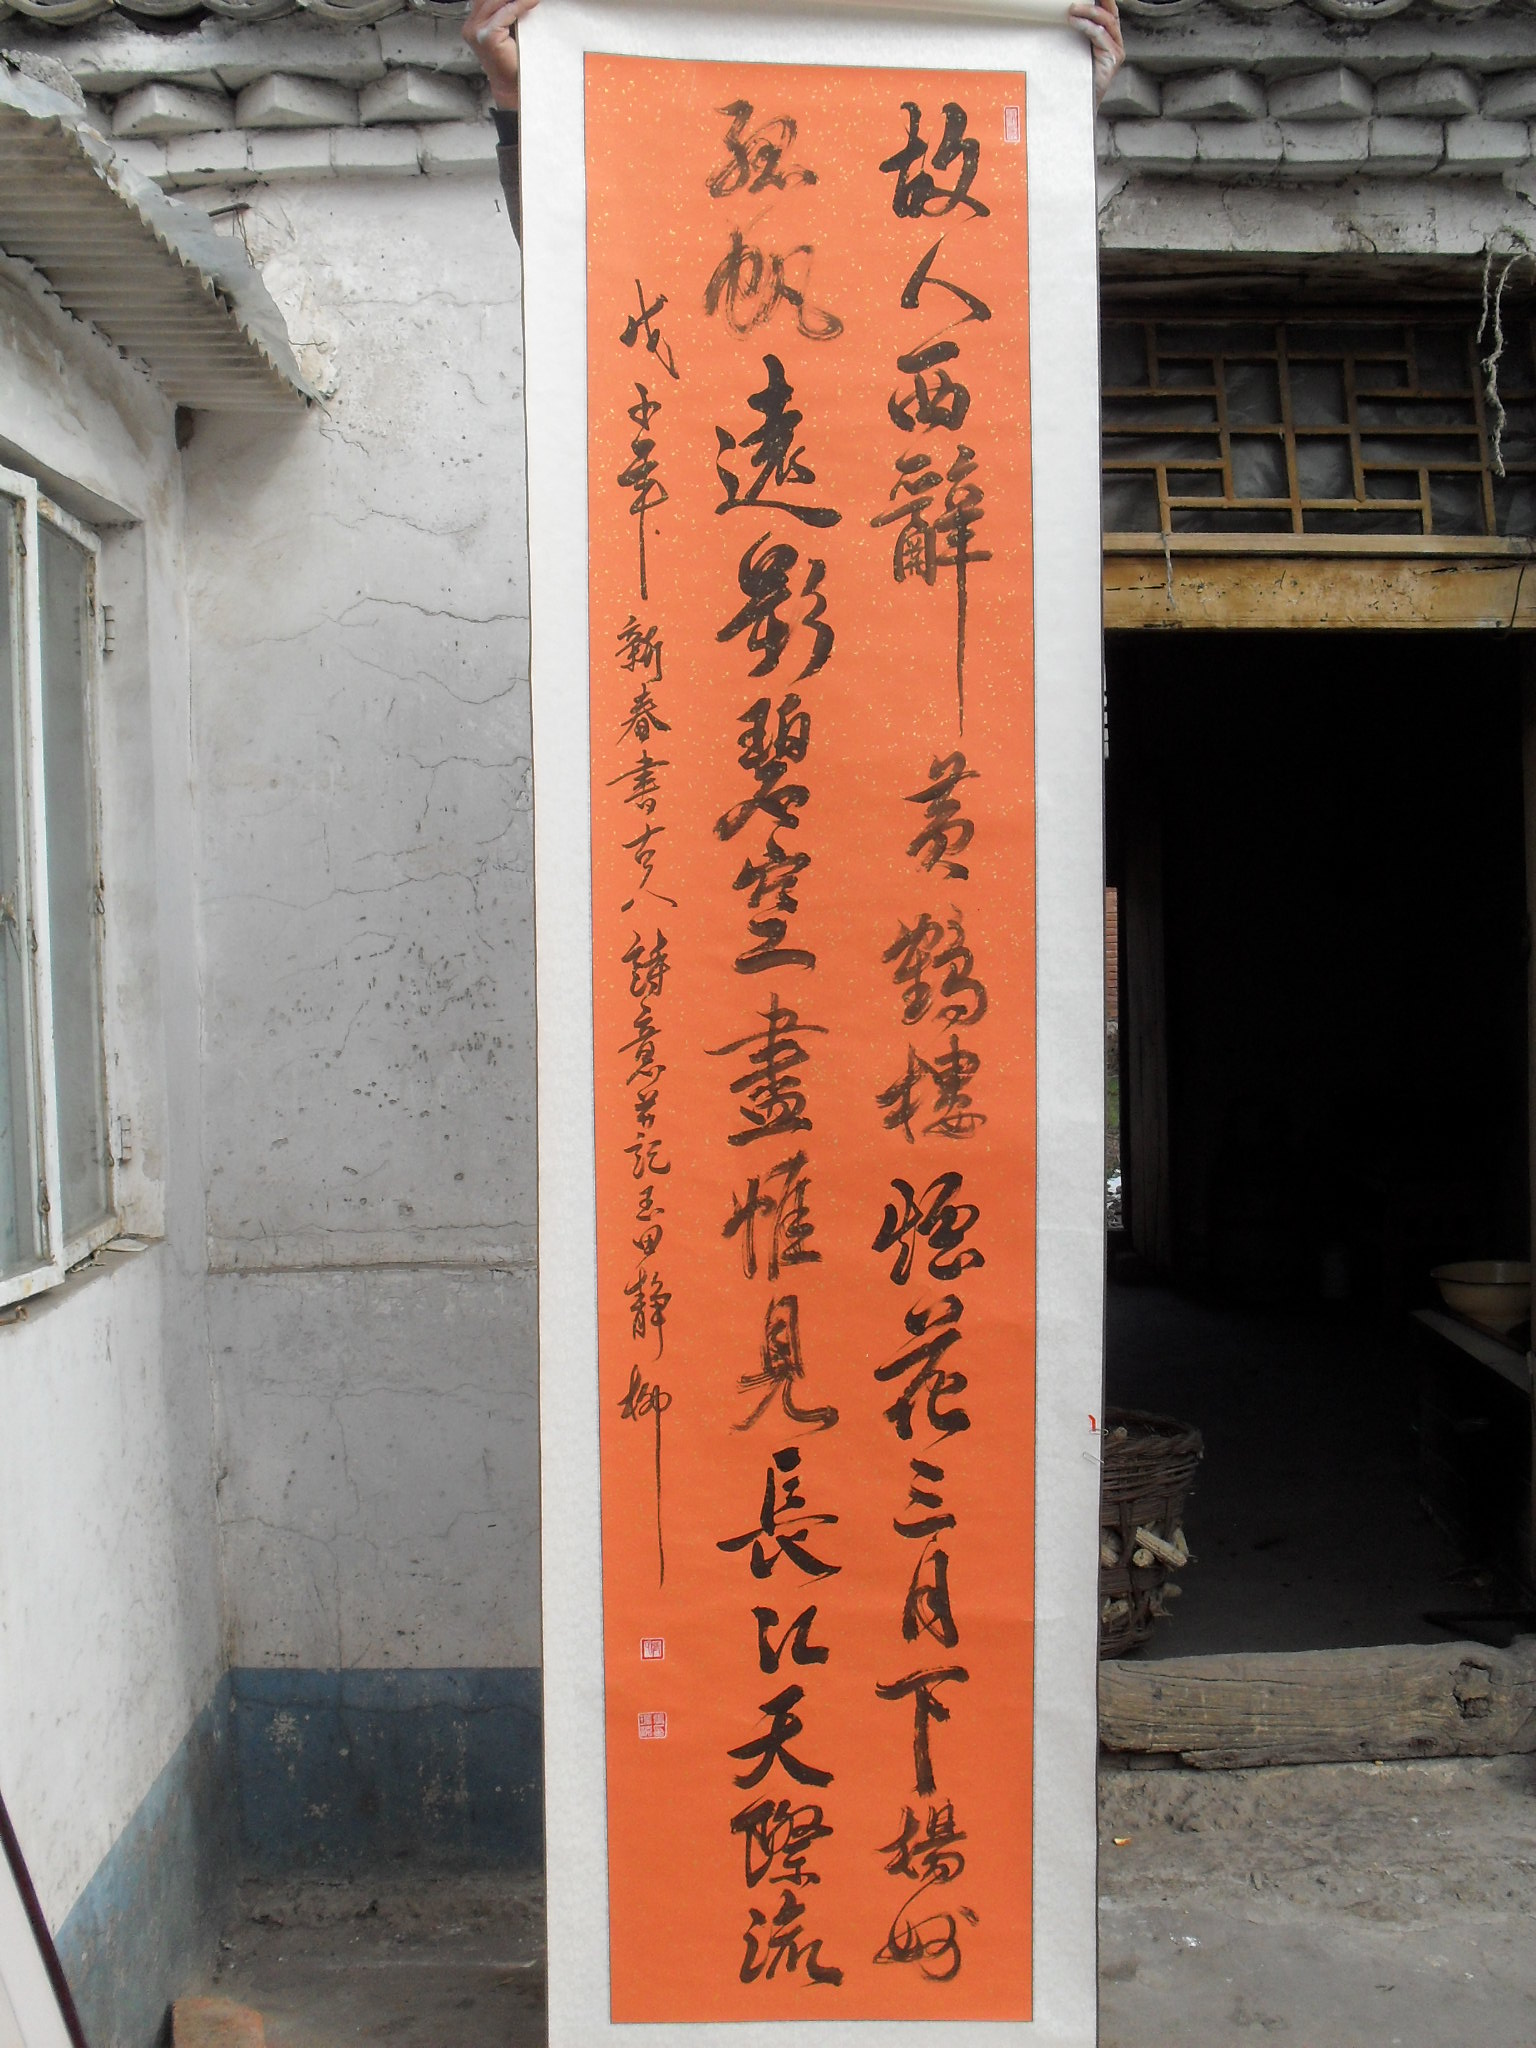 故人西辭黃鶴樓煙花三月下揚州
孤帆遠影碧空盡惟見長江天際流
戊子年新春書古人詩意並記玉田靜柳